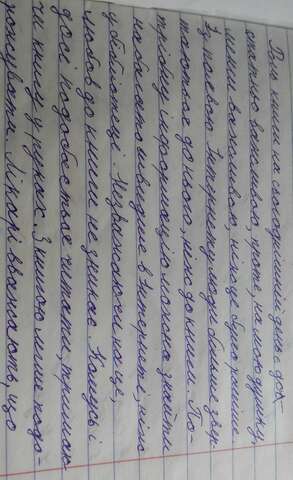 Роль книги на сьогоднішній день дос-
татньо важлива, проте, на мою думку,
менш важливою, ніж це було раніше.
З появою Інтернету люди більше звер-
таються до нього, ніж до книги. По-
трібну інформацію можна знайти
набагато швидше в Інтернеті, ніж
у бібліотеці. Незважаючи на це,
любов до книги не зникає. Комусь і
досі подобається читати, тримаю
чи книгу у руках. З іншого
ронсувати. Лікарі вважають, що